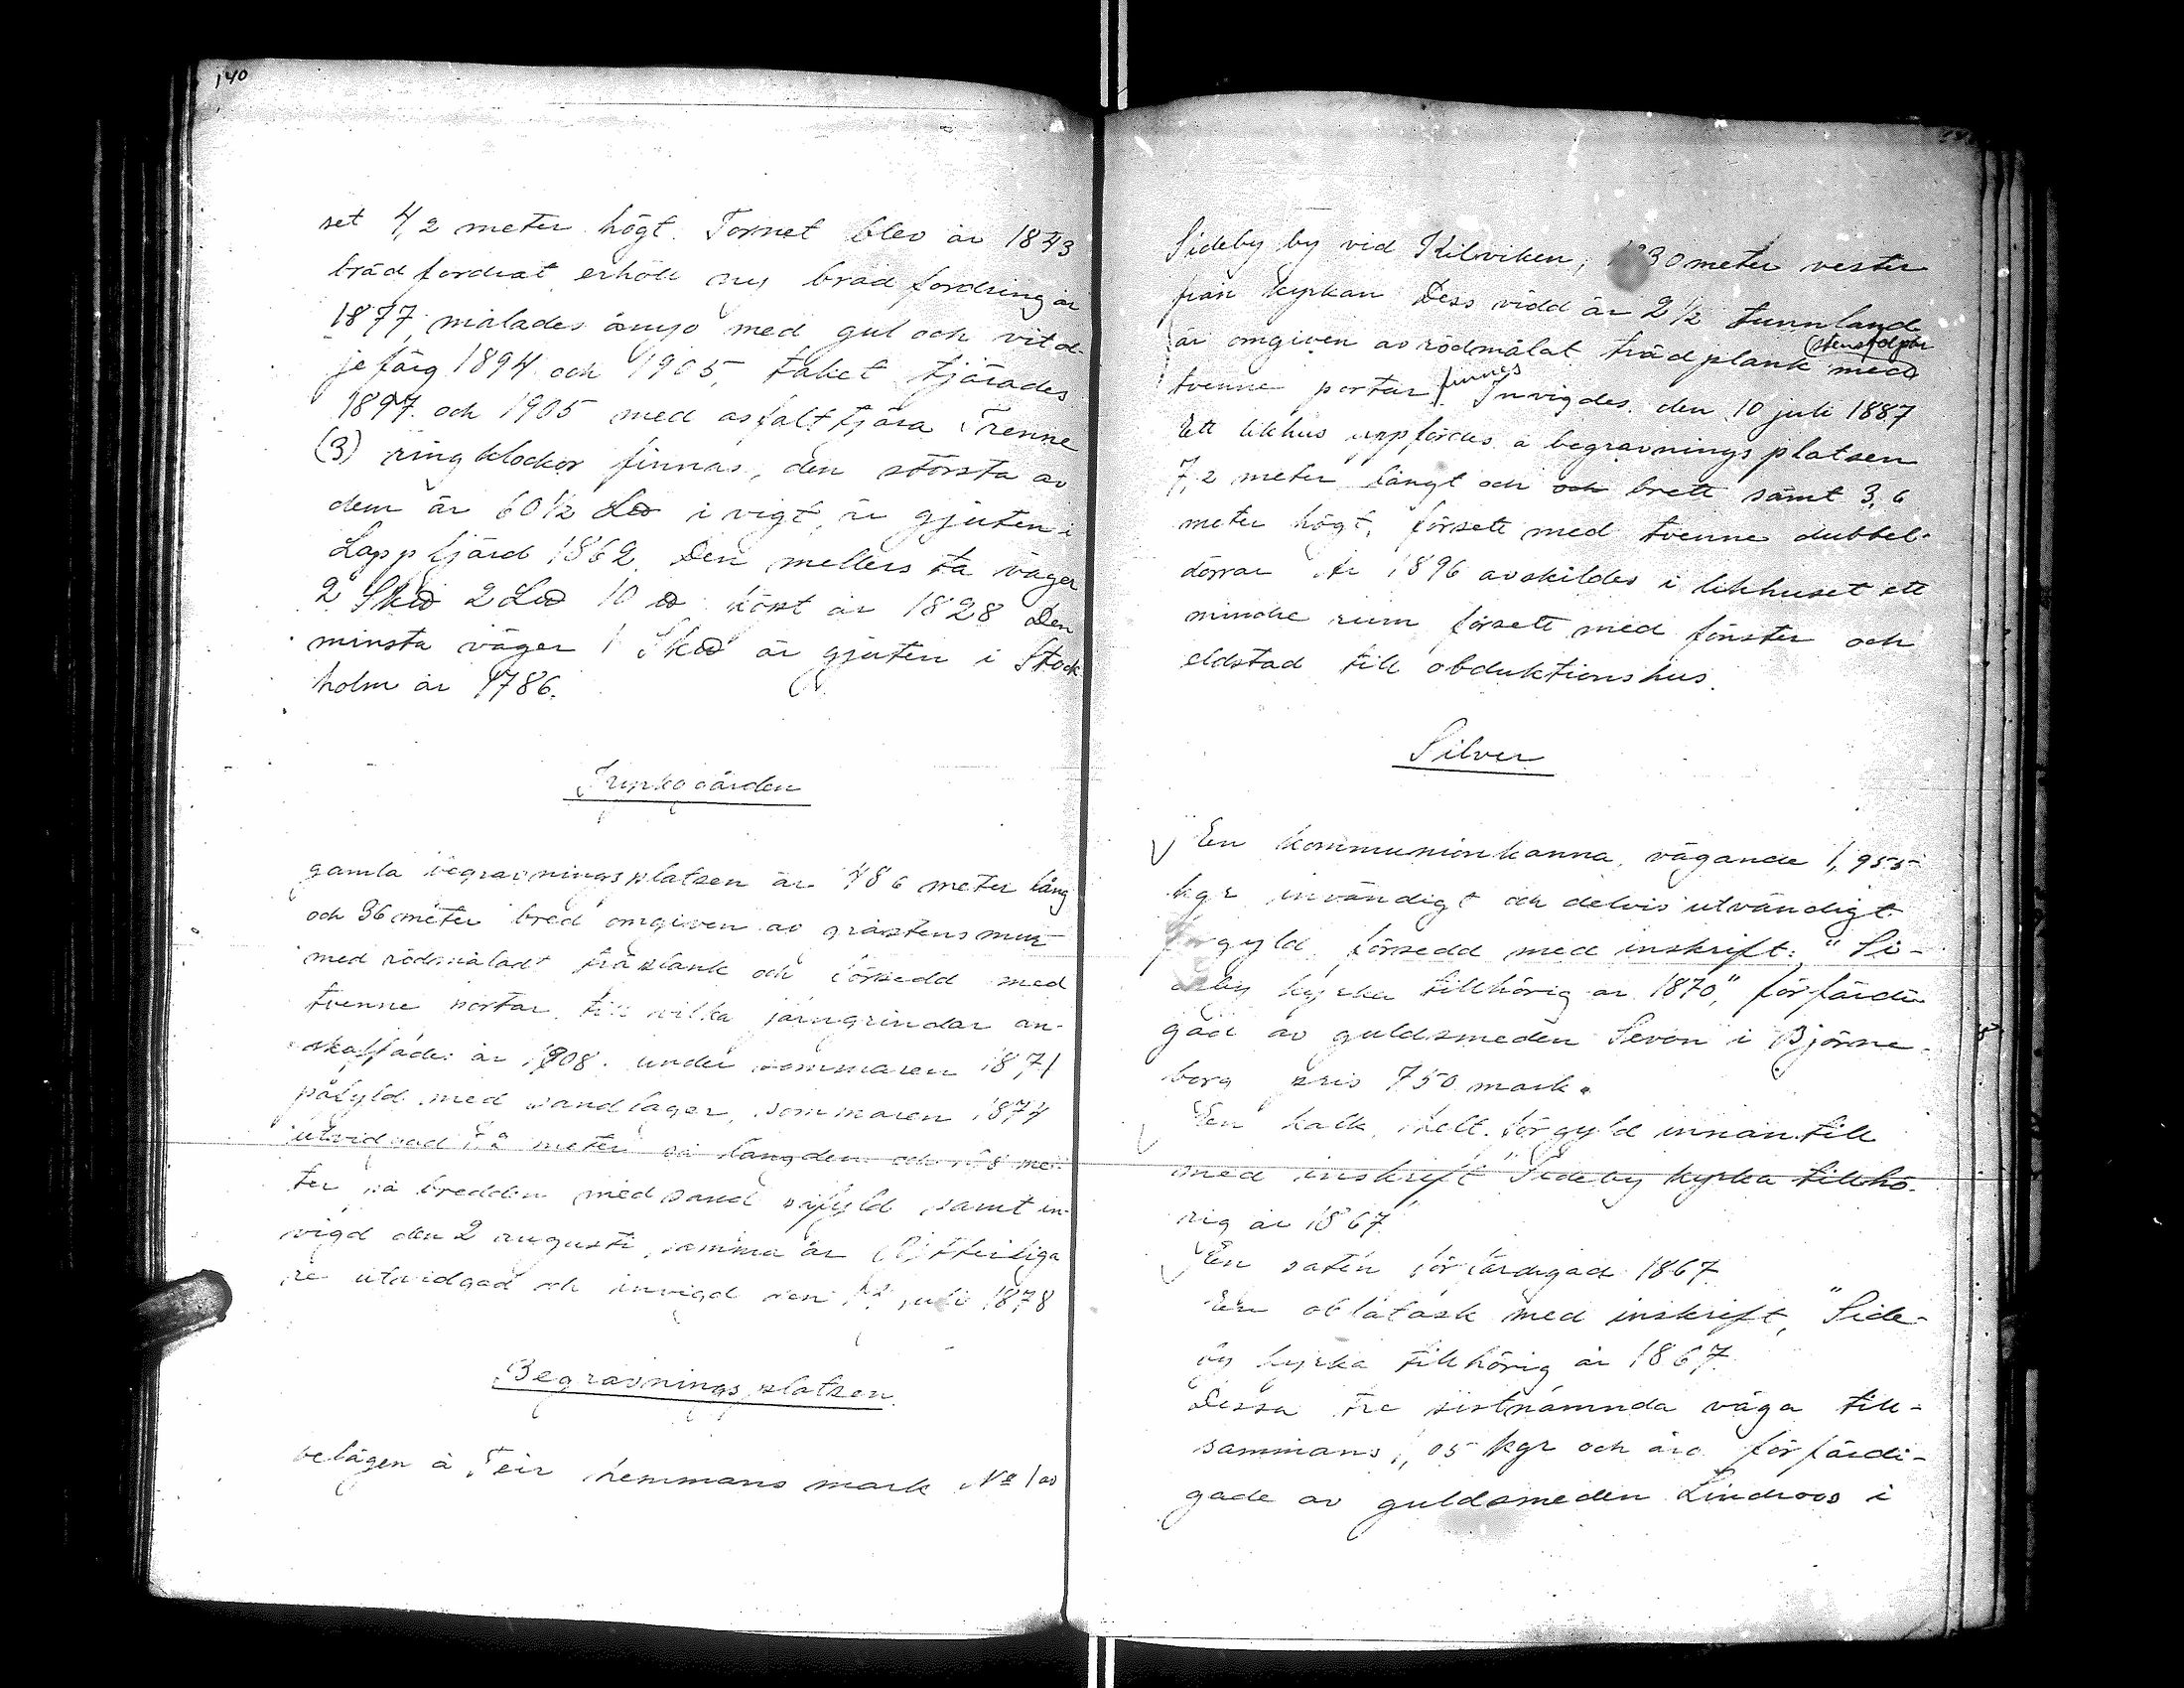 140
set 4,2 meter högt. Tornet blev år 1843
brädfordrat, erhöll ny brädfordring år
1877, målades ånyo med gul och vit ol-
jefärg 1894 och 1905, taket tjärades
1897 och 1905 med asfalttjära Trenne
(3) ringklockor finnas, den största av
dem är 60 1/2 L℔ i vigt, är gjuten i
Lappfjärd 1862. Den mellersta väger
2 Sk℔ 2 L℔ 10 ℔ köpt år 1828 Den
minsta väger 1 Sk℔ är gjuten i Stock
holm år 1786.
Kyrkogården
gamla begravningsplatsen är 48 6 meter lång
och 36 meter bred omgiven av gråstensmur
med rödmåladt träplank och försedd med
tvenne portar, till vilka järngrindar an-
skaffades år 1908. under sommaren 1871
påfyld med sandlager, sommaren 1874
utvidgad meter på längden och 8 me-
ter på bredden med sand påfyld samt in-
vigd den 2 augusti samma år Ytterliga
re utvidgad och invigd den juli 1878
Begravningsplatsen
belägen å Teir hemmans mark No 1 av
Sideby by vid Kilviken, 30 meter vester
från kyrkan Dess vidd är 2 1/2 tunnland
är omgiven av rödmålat trädplank med stenstolpar
tvenne portar finnes. Invigdes den 10 juli 1887
Ett likhus uppfördes å begravningsplatsen
7,2 meter långt och och brett samt 3,6
meter högt, försett med tvenne dubbel-
dörrar År 1896 avskildes i likhuset ett
mindre rum försett med fönster och
eldstad till obduktionshus.
Silver
En kommunionkanna, vägande 1,955
kgr invändigt och delvis utvändigt
förgyld, försedd med inskrift: "Si-
deby kyrka tillhörig år 1870", förfärdi-
gad av guldsmeden Sevon i Björne-
borg pris 750 mark.
En kalk, helt förgyld innantill
med inskrift "Sideby kyrka tillhö-
rig år 1867"
En patén förfärdigad 1867.
En oblatask med inskrift, "Side-
by kyrka tillhörig år 1867.
Dessa tre sistnämnda väga till-
sammans 1,05 kgr och äro förfärdi-
gade av guldsmeden Lindroos i